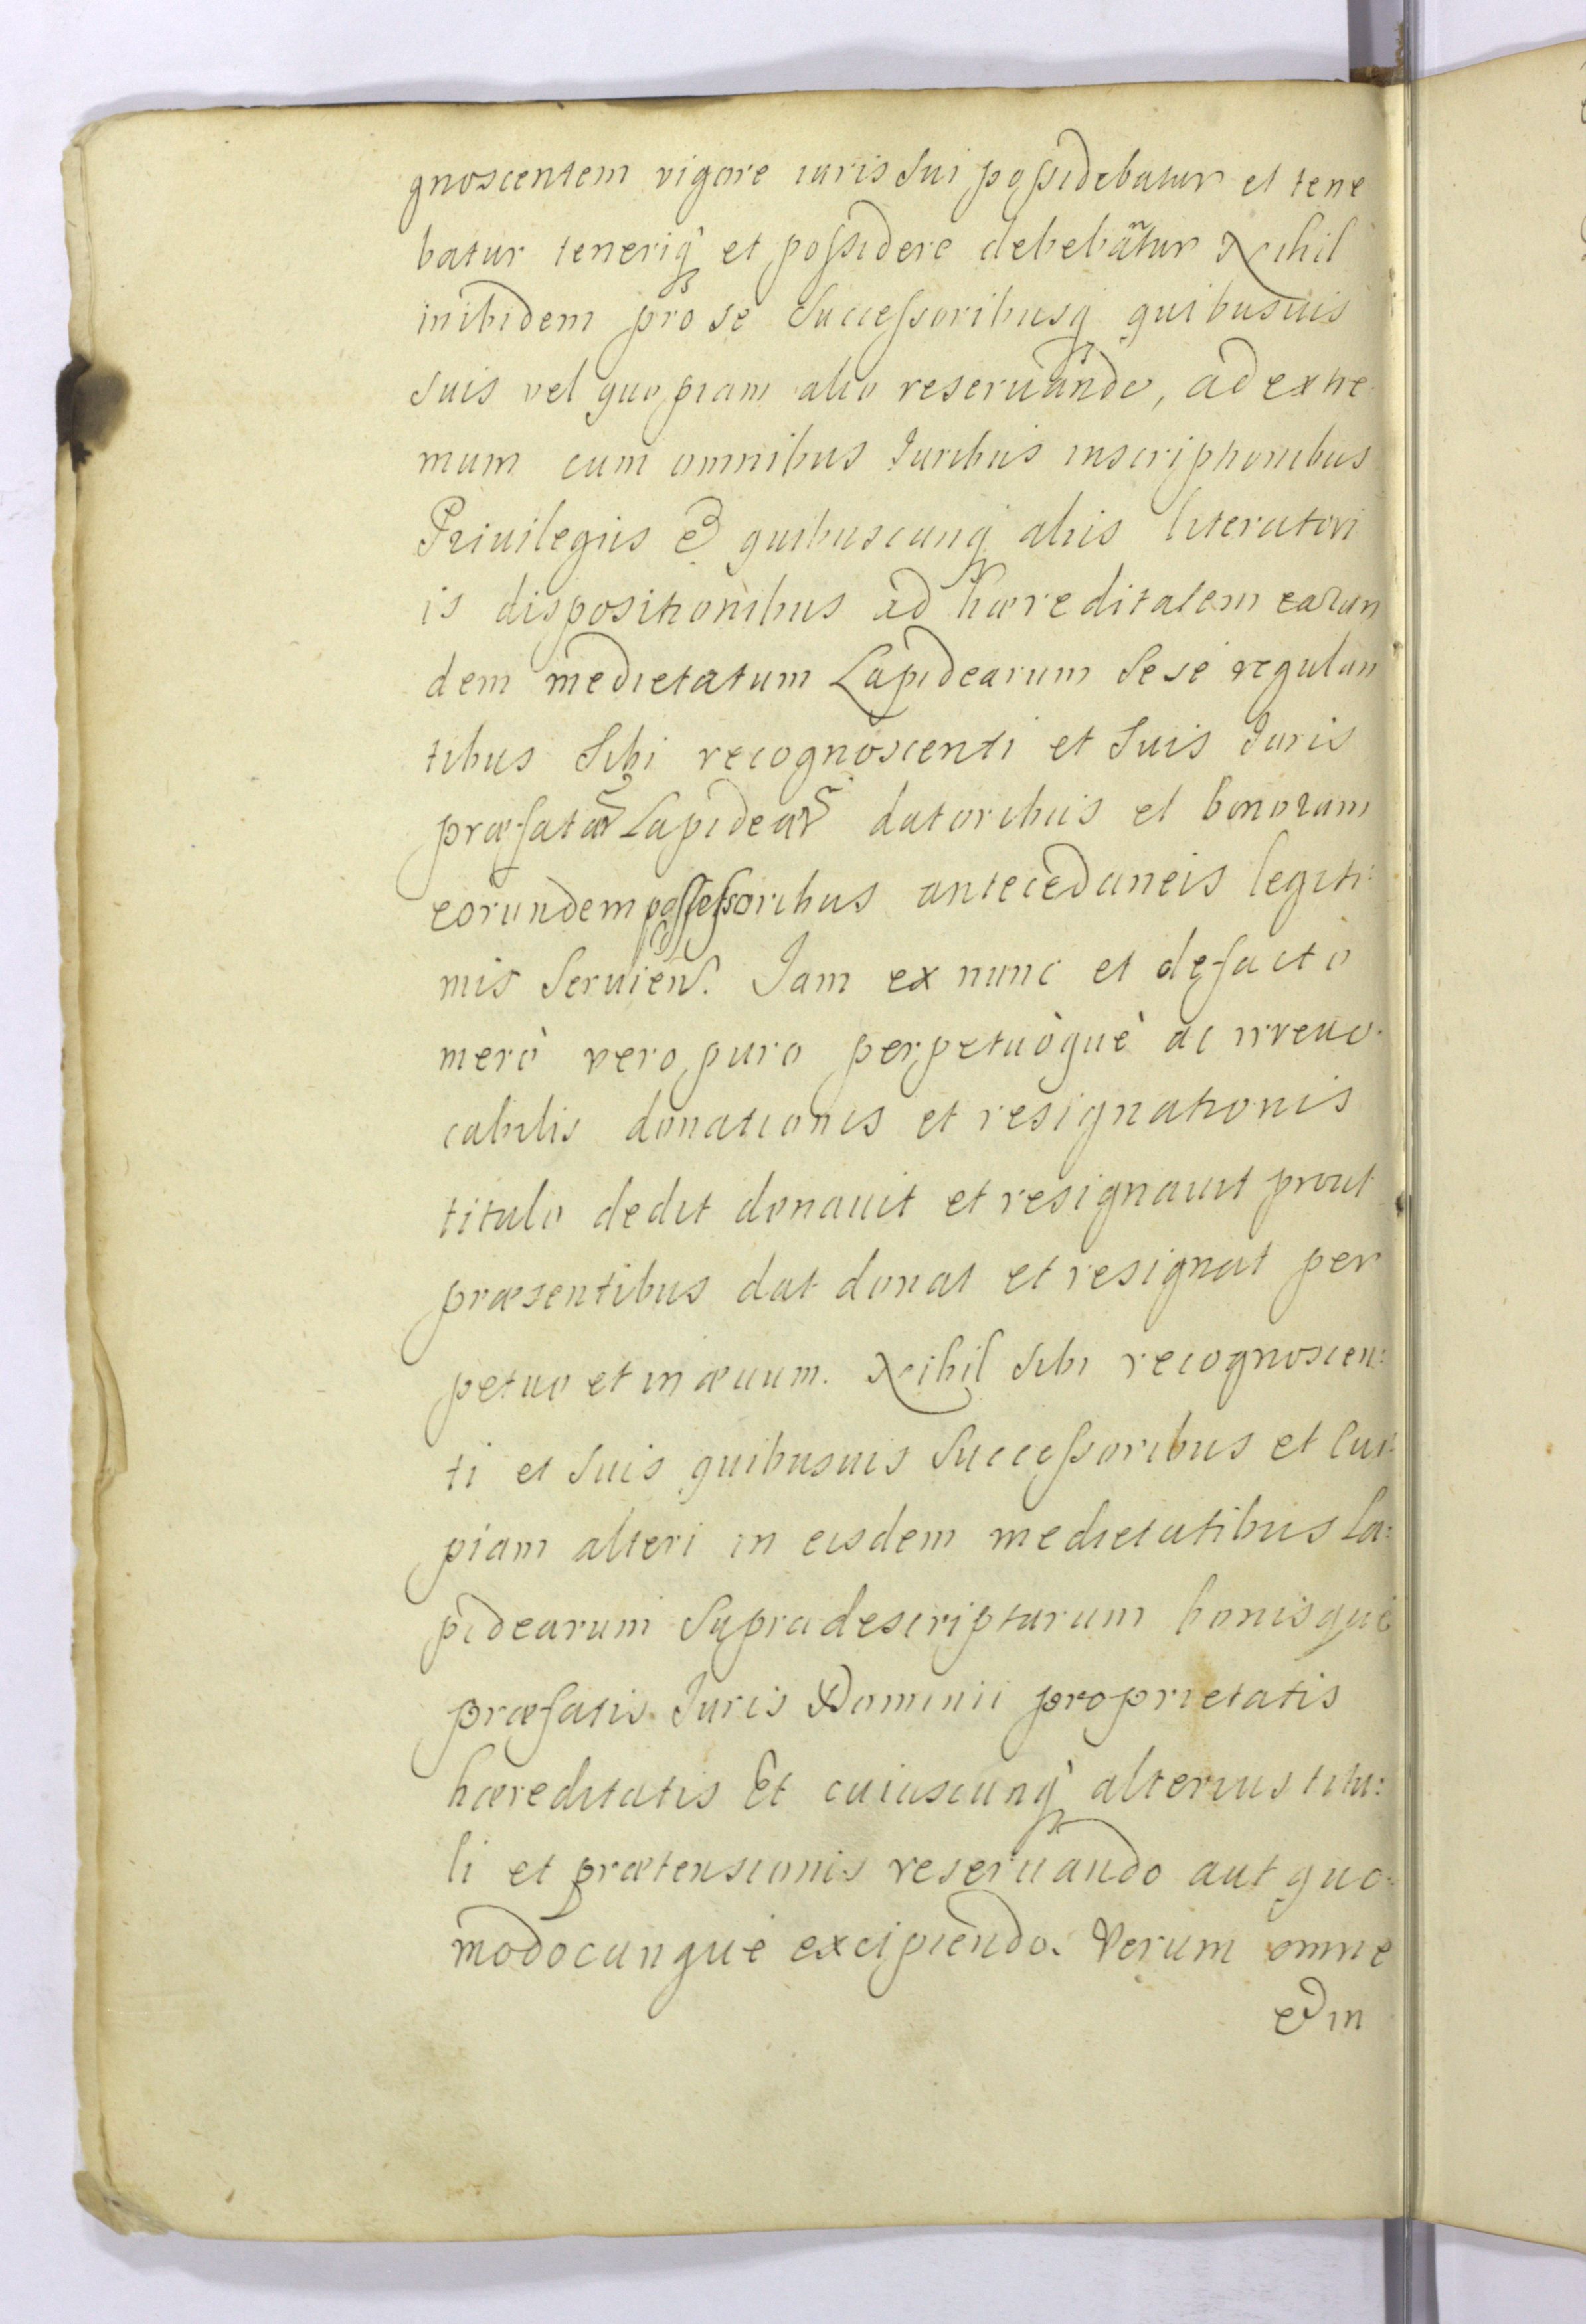 gnoscentem vigore iuris Sui possidebatur et tene
batur teneriq̀ et possidere debebãtur Nihil
inibidem pro se Successoribusq quibusuis
Suis vel quopiam alio reseruando, ad extre
mum cum omnibus Iuribus inscriptionibus
Priuilegiis & quibuscunq aliis literatori
is dispositionibus ad hæreditatem earun
dem medietatum Lapidearum Sese regulan
tibus Sibi recognoscenti et Suis Iuris
præfatar Lapidear datoribus et bonorum
eorundem possessoribus antecedaneis legiti:
mis Seruien. Iam ex nunc et defacto
merò vero puro perpetuòquè ac irreuo-
cabilis donationis et resignationis
titulo dedit donauit et resignauit prout
præsentibus dat donat et resignat per
petuo et in æuum. Nihil Sibi recognoscen:
ti et Suis quibusuis Successoribus et cui-
piam alteri in eisdem medietatibus La:
pidearum Supradescriptarum bonisque
præfatis Iuris Dominii proprietatis
hæreditatis Et cuiuscunq̀ alterius titu:
li et prætensionis reseruando aut quo:
modocunque excipiendo. Verum omne
& in